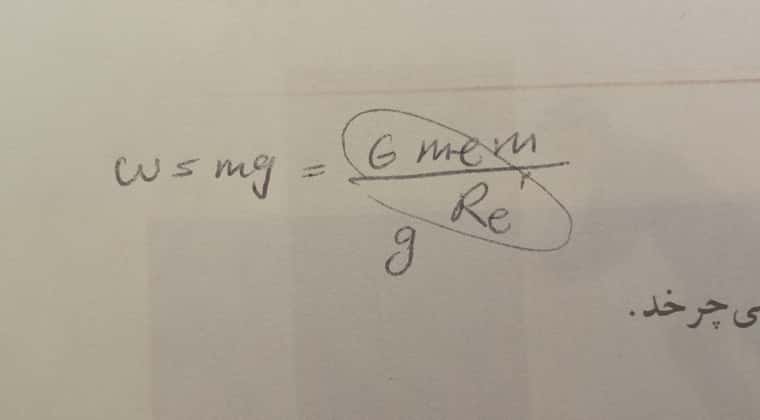 w = mg = G me m / Re²
g
ی چرخد.